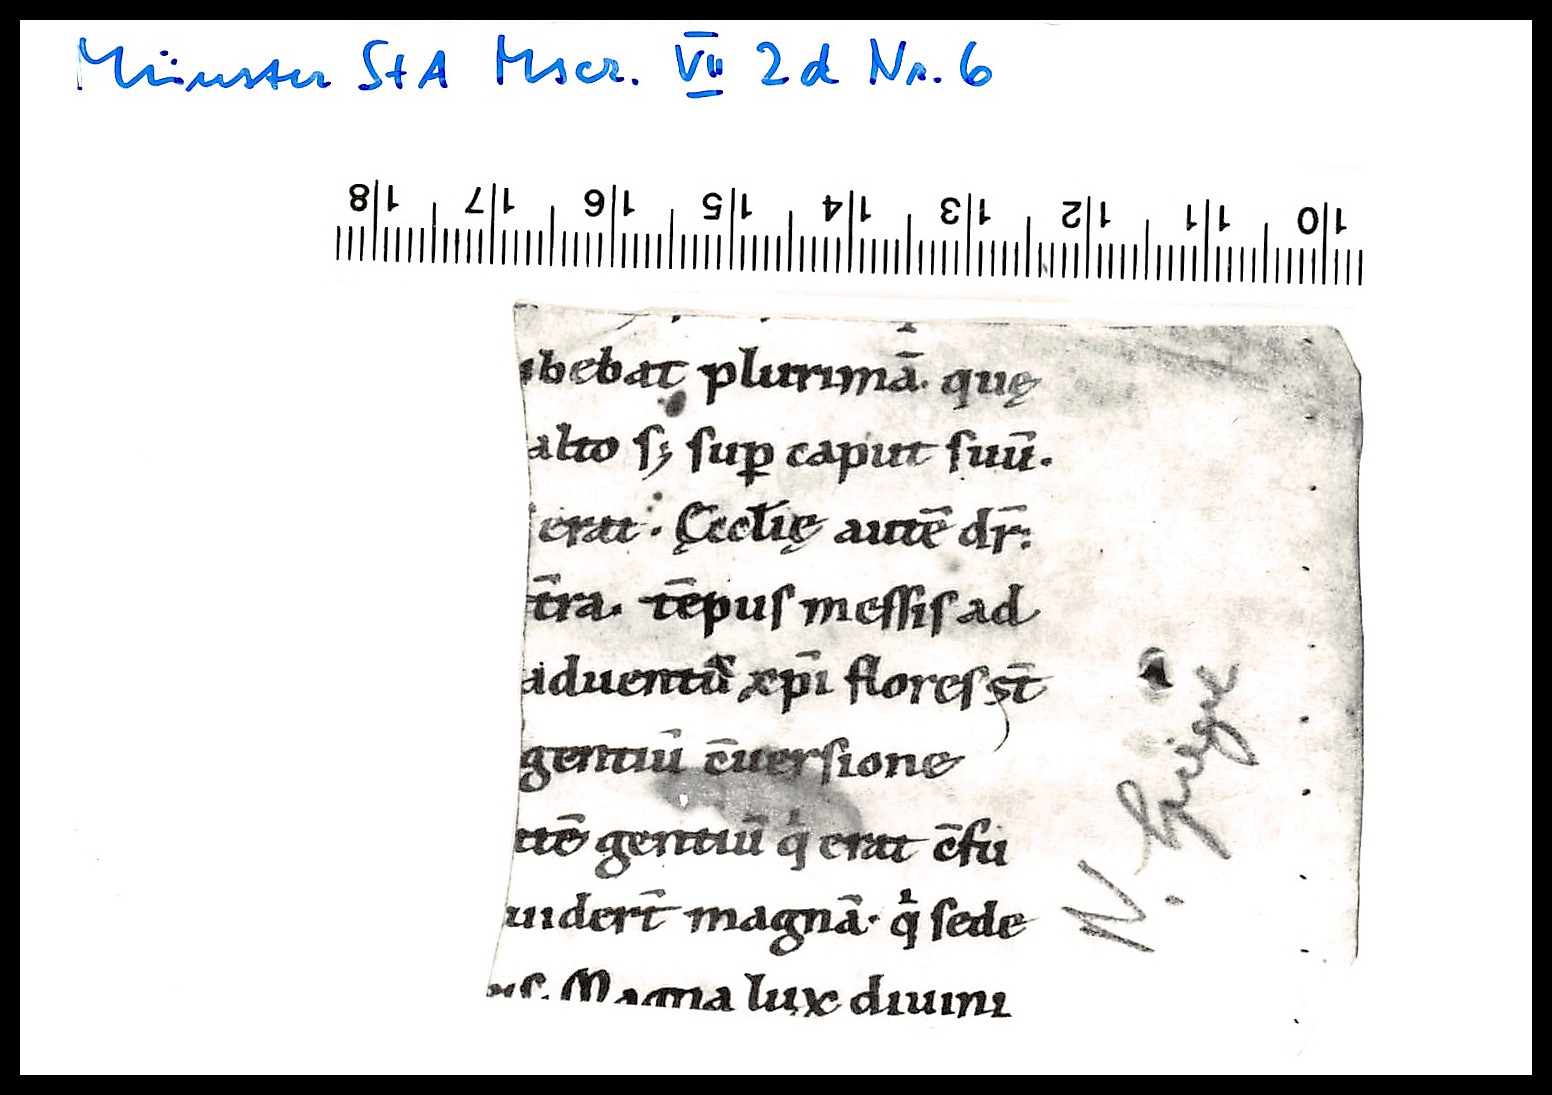 Münster StA Mscr. VII 2d Nr. 6
18 17 16 15 14 13 12 11 10
ibebat plurimā. quę
alto sꝫ suꝑ caput suū.
erat. Ęccłię autē dr̄:
t̄ra. tēpus messis ad
aduentū xp̄i flores st̄
gentiū c̄uersione
ttē gentiū qͥ erat c̄fu
uidert̄ magnā. qͥ sede
Magna lux diuini